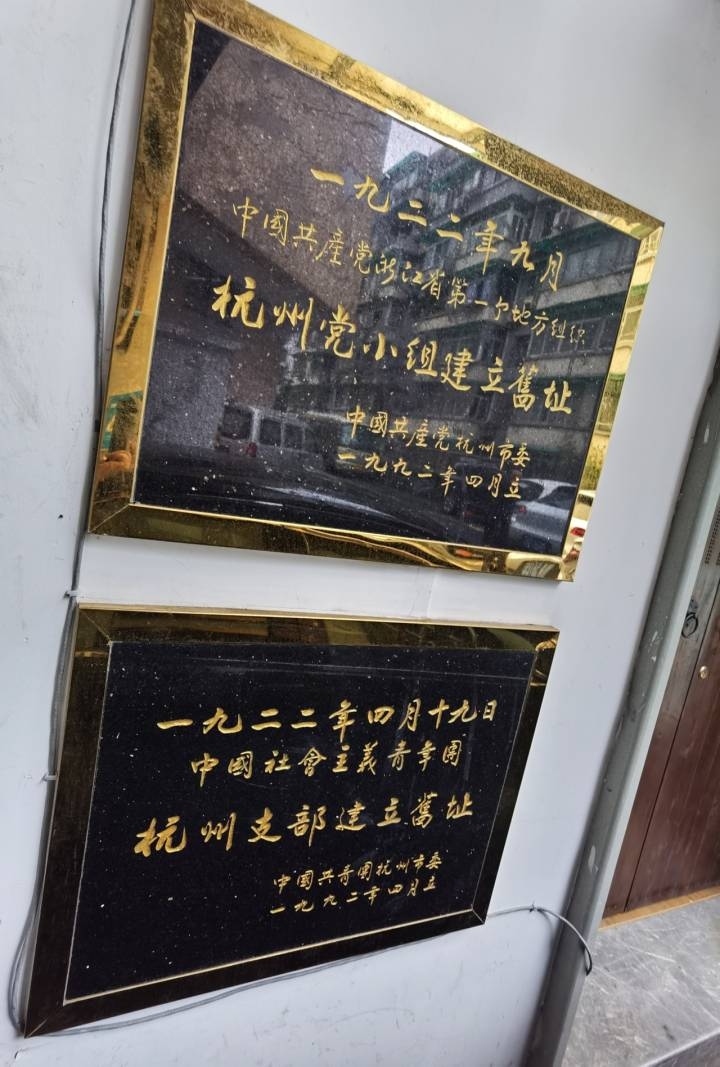 一九二二年九月
中國共產党浙江省第一个地方组织
杭州党小组建立舊址
中國共產党杭州市委
一九九二年四月立
一九二二年四月十九日
中國社會主義青年團
杭州支部建立舊址
中國共青團杭州市委
一九九二年四月立